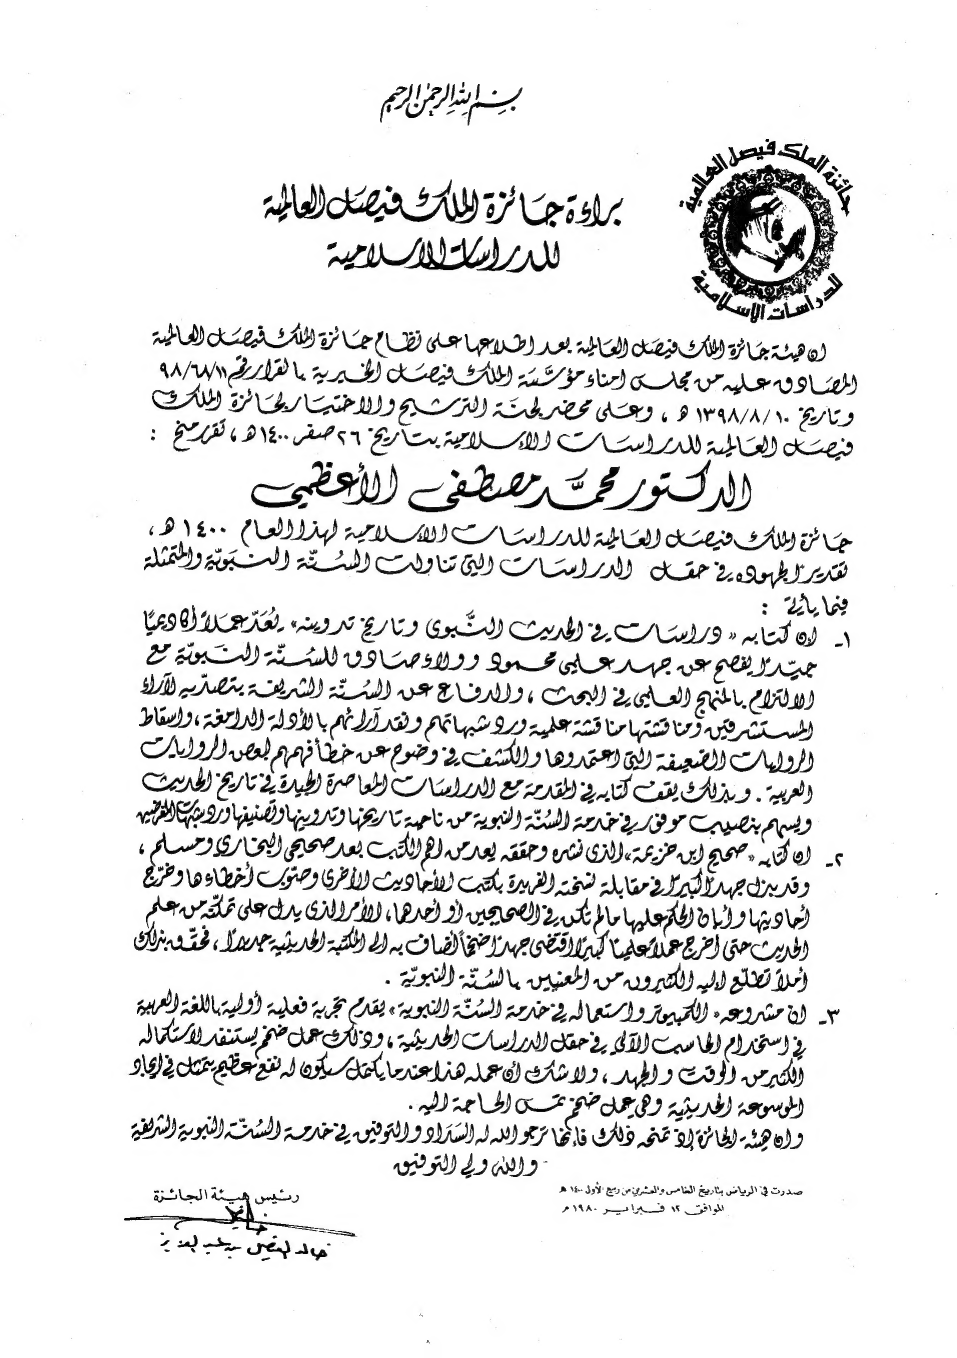 بسم الله الرحمن الرحيم
جائزة الملك فيصل العالمية
للدراسات الإسلامية
براءة جائزة الملك فيصل العالمية
للدراسات الاسلامية
ان هيئة جائزة الملك فيصل العالمية بعد اطلاعها على نظام جائزة الملك فيصل العالمية
المصادق عليه من مجلس امناء مؤسَّسة الملك فيصل الخيرية بالقرار رقم ٩٨/٦٨/١١
وتاريخ ١٣٩٨/٨/١٠ هـ ، وعلى محضر لجنة الترشيح والاختيار لجائزة الملك
فيصل العالمية للدراسات الإسلامية بتاريخ ٢٦ صفر ١٤٠٠ هـ ، تقرر منح :
الدكتور محمَّد مصطفى الأعظمي
جائزة الملك فيصل العالمية للدراسات الإسلامية لهذا العام ١٤٠٠ هـ ،
تقديرًا لجهوده في حقل الدراسات التي تناولت السُنّة النبويّة والمتمثلة
فيما يأتي :
١ـ ان كتابه « دراسات في الحديث النَّبوى وتاريخ تدوينه » يُعَدّ عملاً أكاديميًا
جيّدًا يفصح عن جهد علمي محمود وولاء صادق للسُنّة النبويّة مع
الالتزام بالمنهج العلمي في البحث ، والدفاع عن السُنّة الشريفة بتصدّيه لآراء
المستشرقين ومناقشتها مناقشة علمية ورد شبهاتهم ونقد آرائهم بالأدلة الدامغة ، واسقاط
الروايات الضعيفة التي اعتمدوها والكشف في وضوح عن خطأ فهمهم لبعض الروايات
العربية . وبذلك يقف كتابه في المقدمة مع الدراسات المعاصرة الجيدة في تاريخ الحديث
ويسهم بنصيب موفور في خدمة السُنّة النبوية من ناحية تاريخها وتدوينها وتصنيفها ورد شبهات المغرضين
٢ـ ان كتابه « صحيح ابن خزيمة » الذى نشره وحققه يعد من اهم الكتب بعد صحيحي البخاري ومسلم ،
وقد بذل جهدًا كبيرًا في مقابلة نسخته الفريدة بكتب الأحاديث الأخرى وصوّب أخطاءها وخرّج
أحاديثها وأبان الحكم عليها مالم تكن في الصحيحين أو أحدهما، الأمر الذى يدل على تمكنه من علم
الحديث حتى أخرج عملاً علميًا كبيرًا اقتضى جهدًا ضخمًا أضاف به الى المكتبة الحديثية جديدًا ، فحقق بذلك
أملاً تطلّع اليه الكثيرون من المعنيين بالسُنّة النبويّة .
٣ـ ان مشروعه « الكمبيوتر واستعماله في خدمة السُنّة النبوية » يقدم تجربة فعلية أولية باللغة العربية
في استخدام الحاسب الآلي في حقل الدراسات الحديثية ، وذلك عمل ضخم يستنفد لاستكماله
الكثير من الوقت والجهد ، ولا شك أن عمله هذا عندما يكمل سيكون له نفع عظيم يتمثل في ايجاد
الموسوعة الحديثية وهي عمل ضخم تمس الحاجة اليه .
وان هيئة الجائزة إذ تمنحه ذلك فإنها ترجو الله له السَداد والتوفيق في خدمة السُنّة النبوية الشريفة
والله ولي التوفيق
صدرت في الرياض بتاريخ الخامس والعشرين من ربيع الأول ١٤٠٠ هـ
الموافق ١٢ فبراير ١٩٨٠ م
رئيس هيئة الجائزة
خالد الفيصل بن عبد العزيز